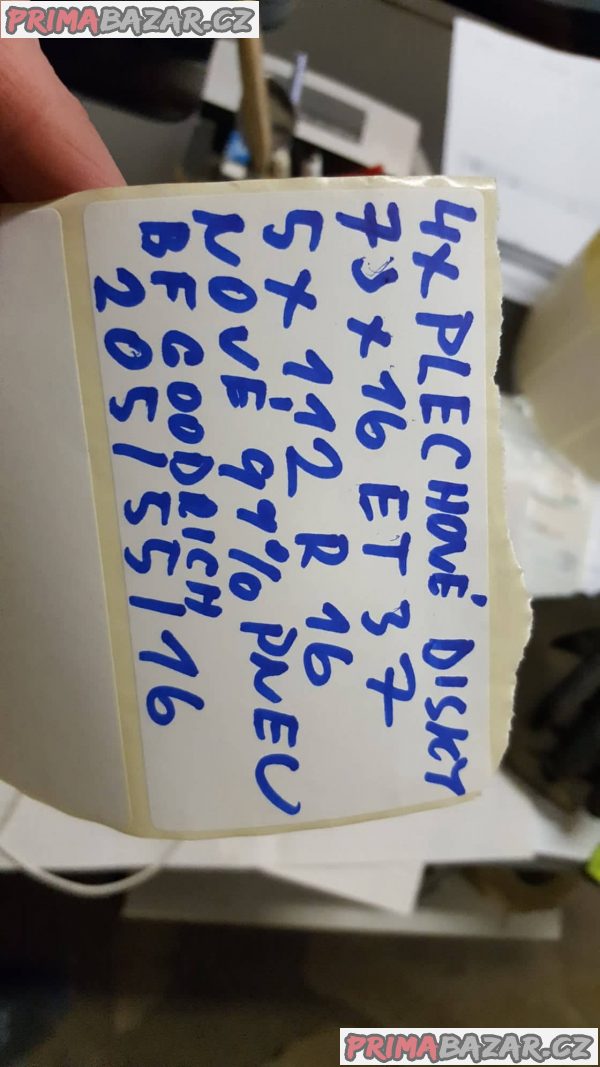 PRIMABAZAR.CZ
4X PLECHOVÉ DISKY
7J X 16 ET 37
5 X 112 R 16
NOVÉ 99% PNEU
BF GOODRICH
205/55/16
PRIMABAZAR.CZ